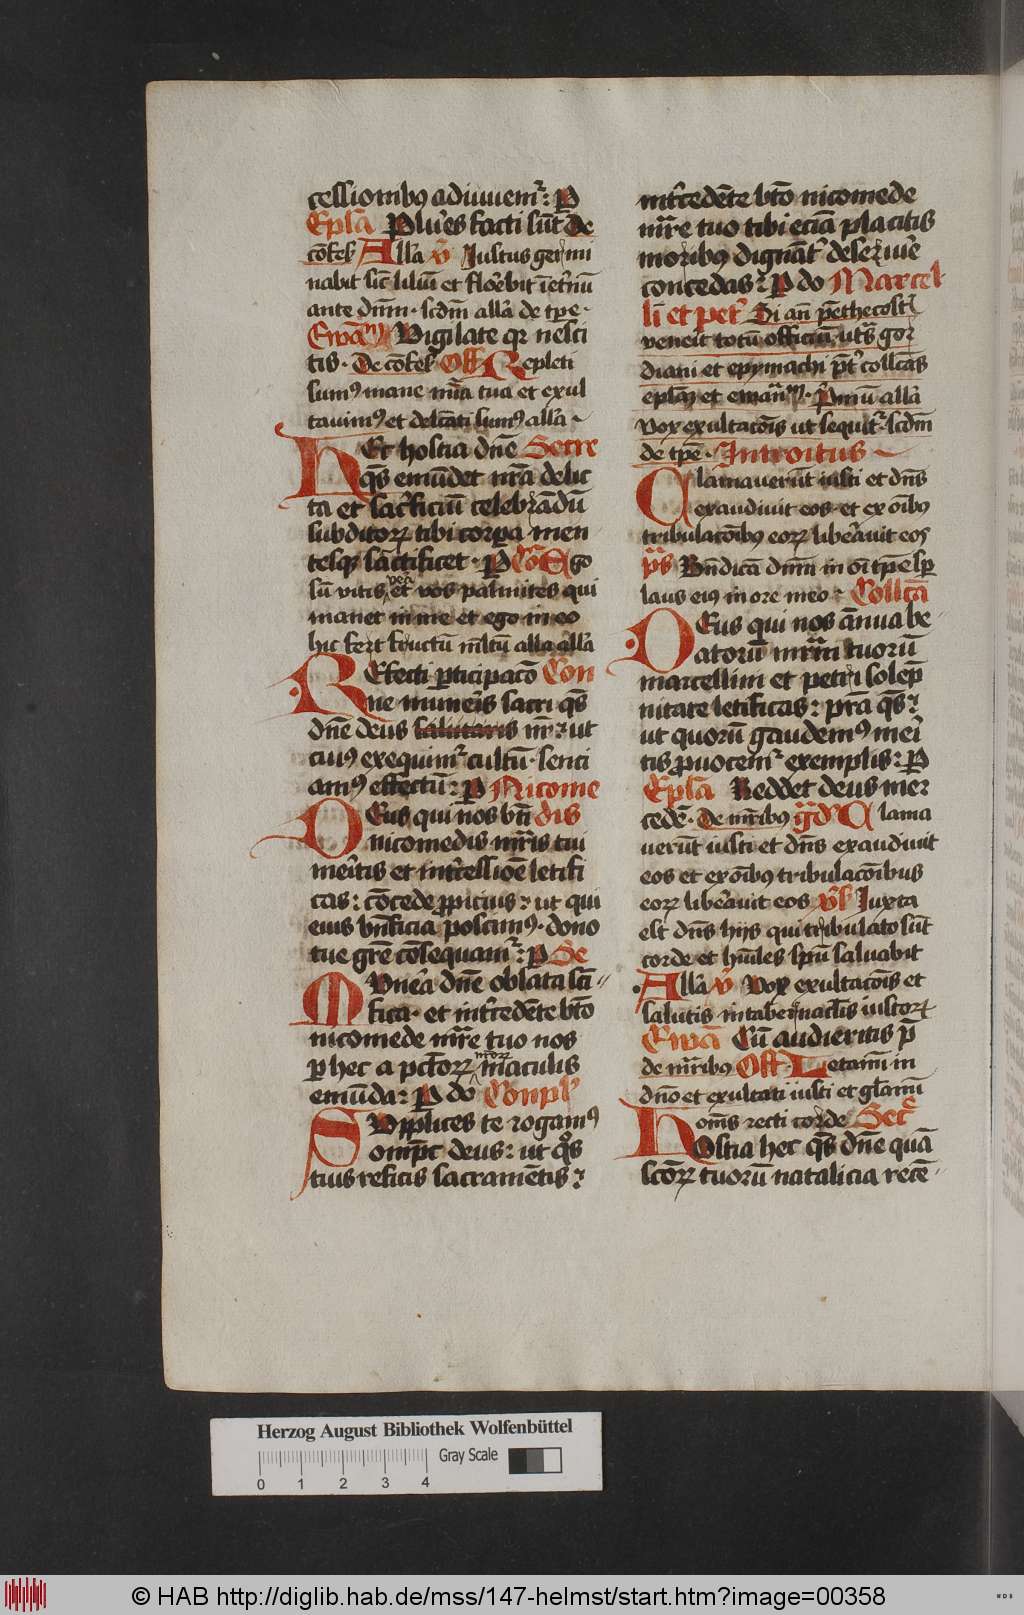 cessionibꝰ adiuuemˀ: P
Epl̄a Plur̾es facti sūt De
cōfess Allā v̄ Iustus germi
nabit sic̄ liliū et flor̾ebit īet̾nū
ante dn̄m · scd̄m allā de tp̄e ·
Ewā Vigilate qr nesci
tis · De cōfess Off Repleti
sumꝰ mane mīa tua et exul
tauimꝰ et delc̄ati sumꝰ allā
HEc hostia dn̄e Secre
qs̄ emūdet nr̄a delic
ta et sac̾ficiū celebrādū
subditorꝝ tibi corpa men
tesqꝫ sāctificet · P Cō Ego
sū vitis vea et vos palmites qui
manet in me et ego in eo
hic fert fructū ml̄tū alla allā
REfecti pticipacō Con
ne muner̾is sacri qs̄
dn̄e deus salutaris nr̄: ut
cuiꝰ exequimˀ cultū · senci
amꝰ effectū: P Nicome
DEus qui nos bt̄i dis
nicomedis mr̄is tui
mer̾itis et int̾cessiōe letifi
cas: cōcede ꝓpicius: ut qui
eius bn̄ficia poscimꝰ · dono
tue gr̄e cōsequamˀ: P Se
MVner̾a dn̄e oblata sc̄i
fica · et int̾cedēte bt̄o
nicomede mr̄e tuo nos
p hec a pct̄orꝝ nr̄orꝝ maculis
emūda: P do Conpl
SVpplices te rogamꝰ
omp̄c deus: ut qͦs
tuis reficis sacramētis:
int̾cedēte bt̄o nicomede
mr̄e tuo tibi eciā placitis
moribꝰ dignāt̾ deseruir̾e
concedas: P do Marcel
li et pet̾ Si an̄ pēthecost̄
veneīt totū officiū, ut s̄ gor
diani et epymachi p̄t collc̄as
epl̄am et ewan̄m · P̾mū allā
Vox exultacōis ut sequit̾ · scd̄m
de tp̄e · Introitus
Clamauerūt iusti et dn̄s
exaudiuit eos · et ex oībꝰ
tribulacōībꝰ eorꝝ liber̾auit eos
p̄s Bn̄dicā dn̄m in oī tp̄e sp̄
laus eiꝰ in ore meo: Collc̄a
DEus qui nos ānua be
atorū mr̄m tuorū
marcellini et petri solēp
nitate letificas: pr̄a qs̄:
ut quorū gaudemꝰ mer̾i
tis ꝓuocemˀ exemplis: P
Epl̄a Reddet deus mer
cedē · De mr̄ibꝰ gd̄ Clama
uerūt iusti et dn̄s exaudiuit
eos et ex oībꝰ tribulacōibus
eorꝝ liber̾auit eos v̄s Iuxta
est dn̄s hijs qui tribulato sūt
corde et hūiles spū saluabit
Allā v̄ Vox exultacōis et
salutis · in tab̾nacl̄is iustorꝝ
Ewā Cū audieritis p̄
de mr̄ibus Off Letamī in
dn̄o et exultati iusti et gl̄amī
oms̄ recti corde Sec̄
HOstia hec qs̄ dn̄e quā
sc̄orꝝ tuorū natalicia recē
Herzog August Bibliothek Wolfenbüttel
Gray Scale
0 1 2 3 4
© HAB http://diglib.hab.de/mss/147-helmst/start.htm?image=00358